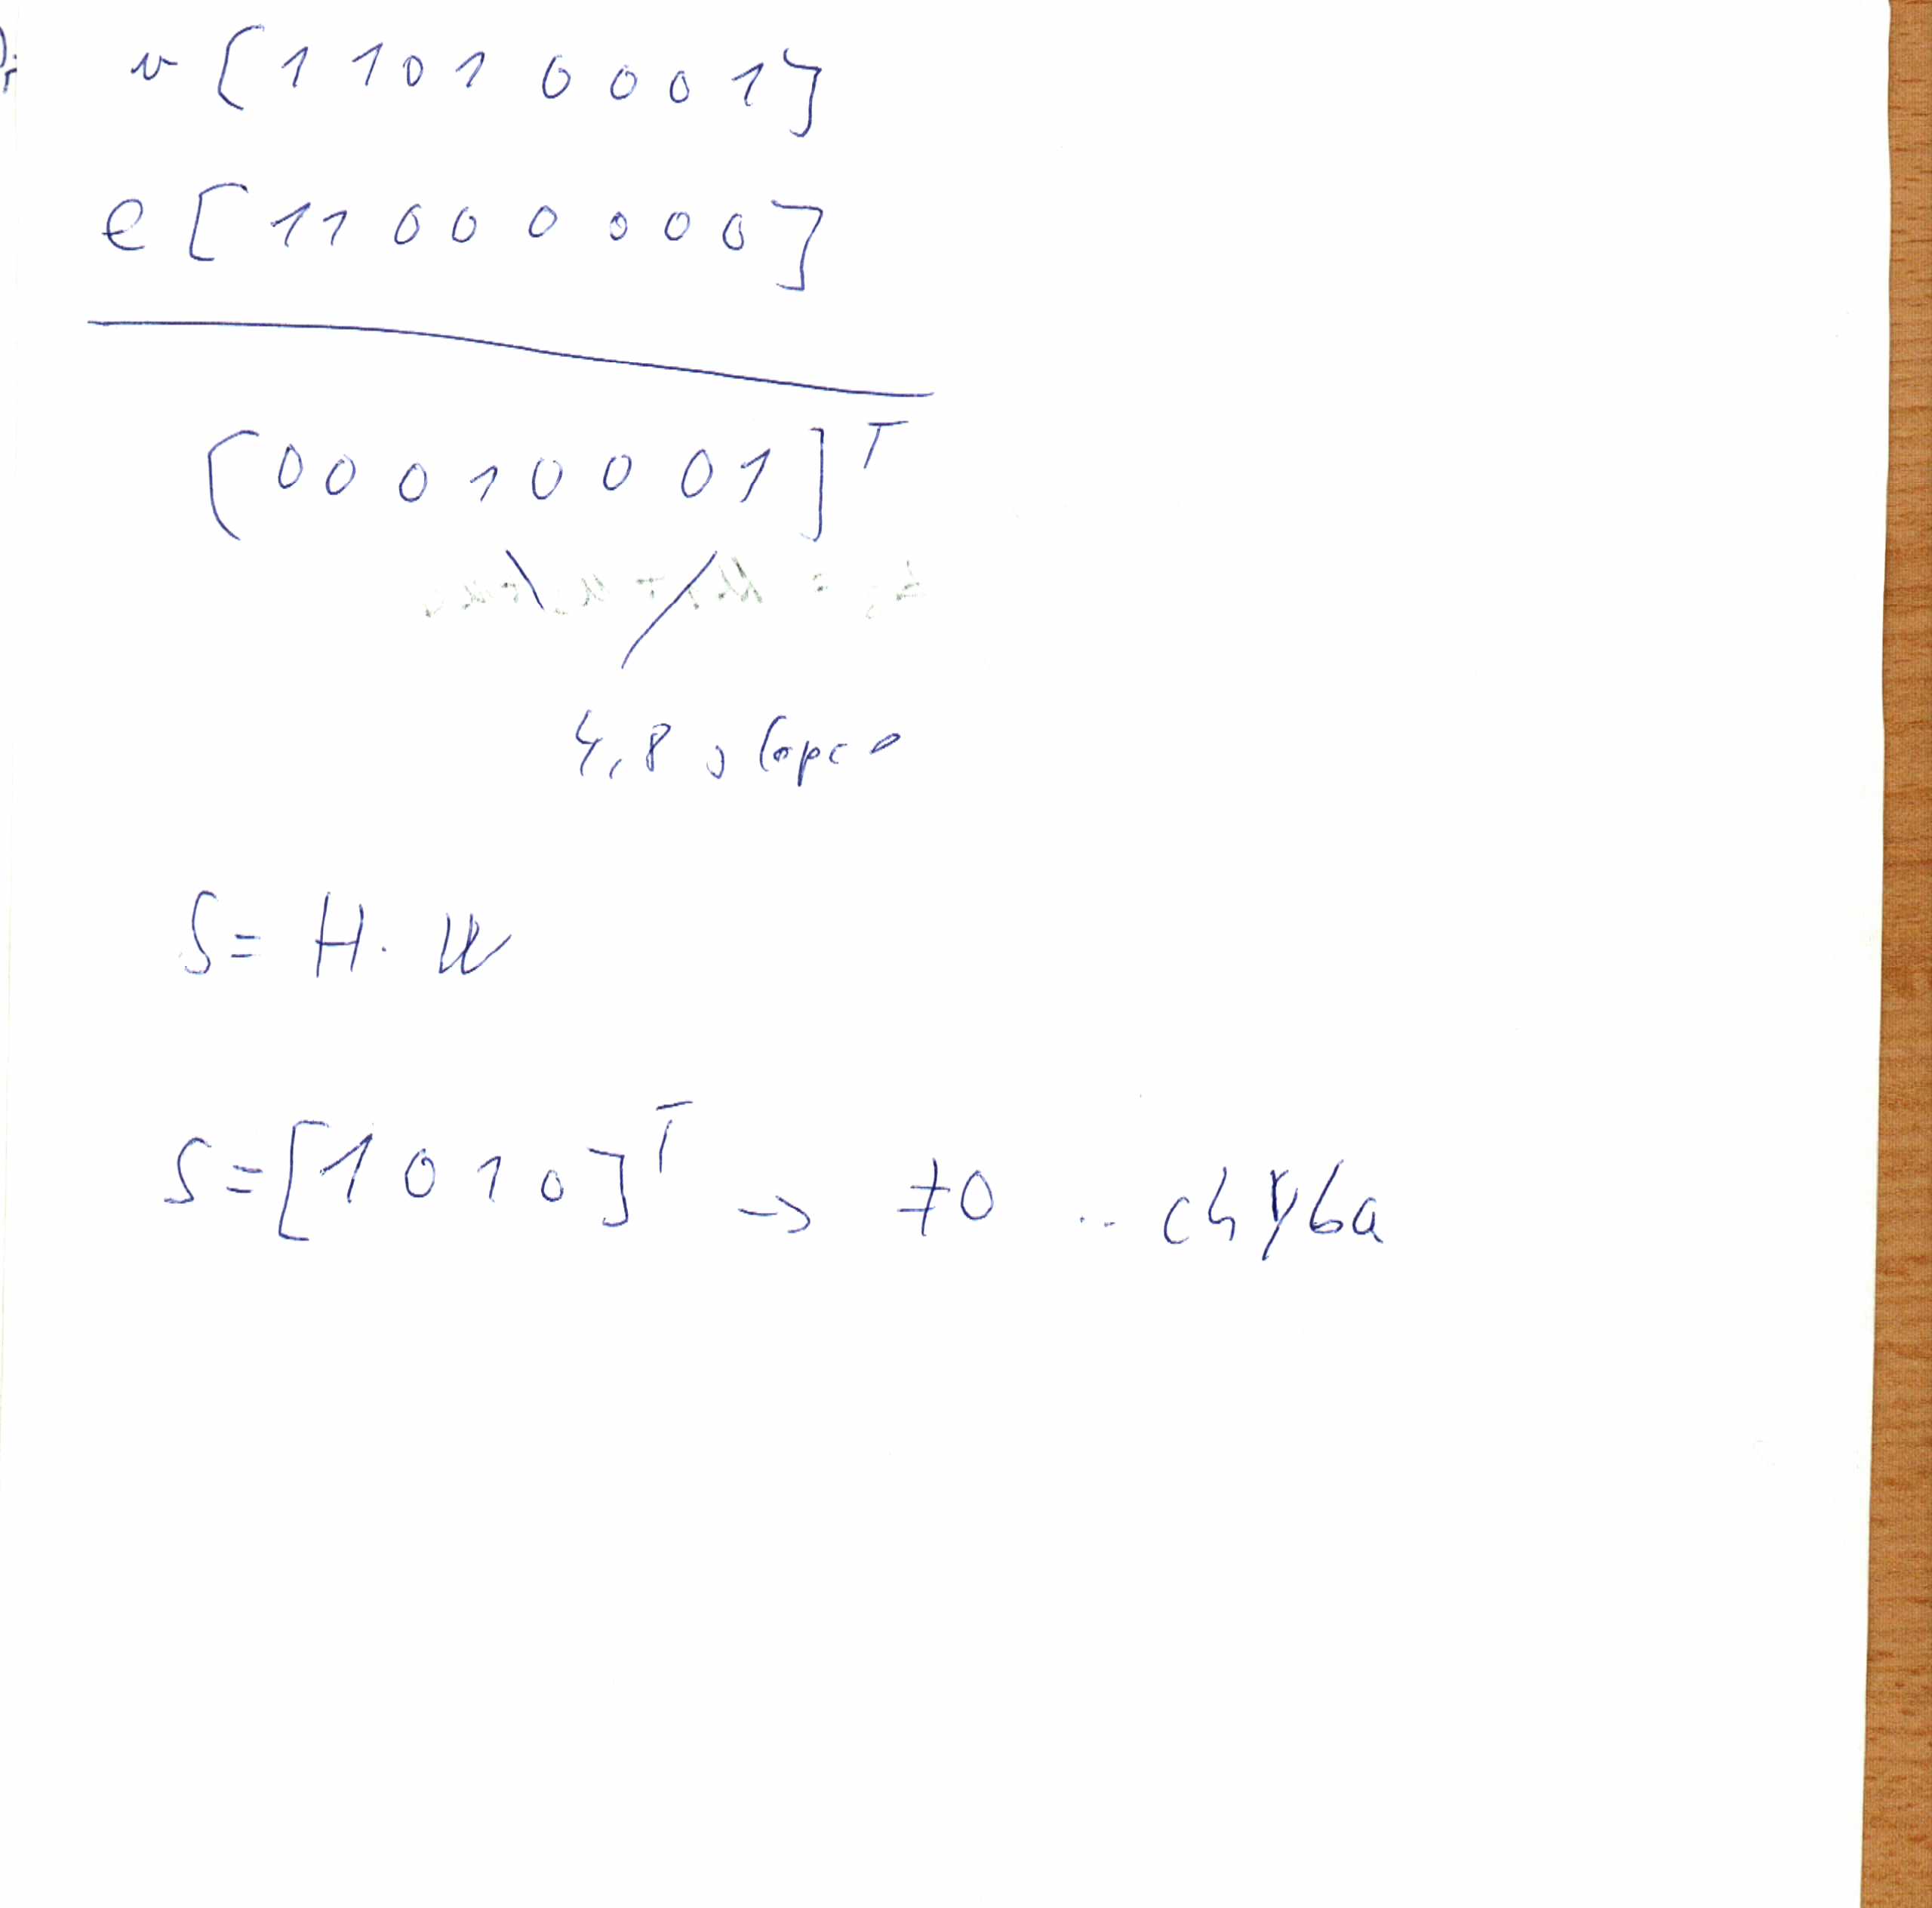 v [ 1 1 0 1 0 0 0 1 ]
e [ 1 1 0 0 0 0 0 0 ]
[ 0 0 0 1 0 0 0 1 ]ᵀ
4,8
S = H · W
S = [ 1 0 1 0 ]ᵀ → ≠0 .. chyba